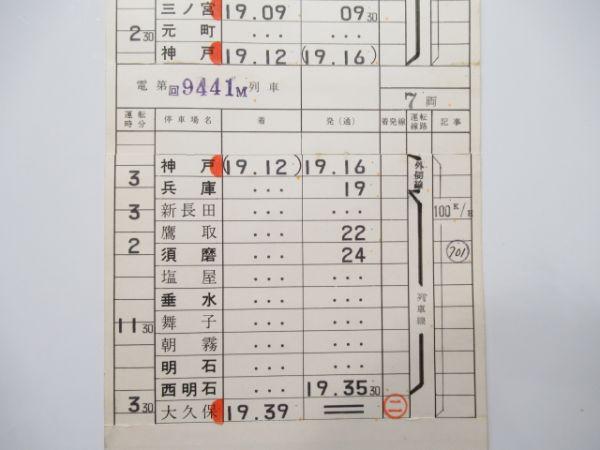 三ノ宮 19.09 09 30
2 30 元町 ... ...
神戸 19.12 (19.16)
電第回9441M列車
7両
運転時分 停車場名 着 発(通) 着発線 運転線路 記事
神戸 (19.12) 19.16 外側線
3 兵庫 ... 19
3 新長田 ... ... 100K/H
鷹取 ... 22
2 須磨 ... 24 701
塩屋 ... ...
垂水 ... ... 列車線
11 30 舞子 ... ...
朝霧 ... ...
明石 ... ...
西明石 ... 19.35 30
3 30 大久保 19.39 = 二